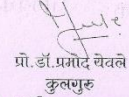 प्रो.डॉ.प्रमोद येवले
कुलगुरु